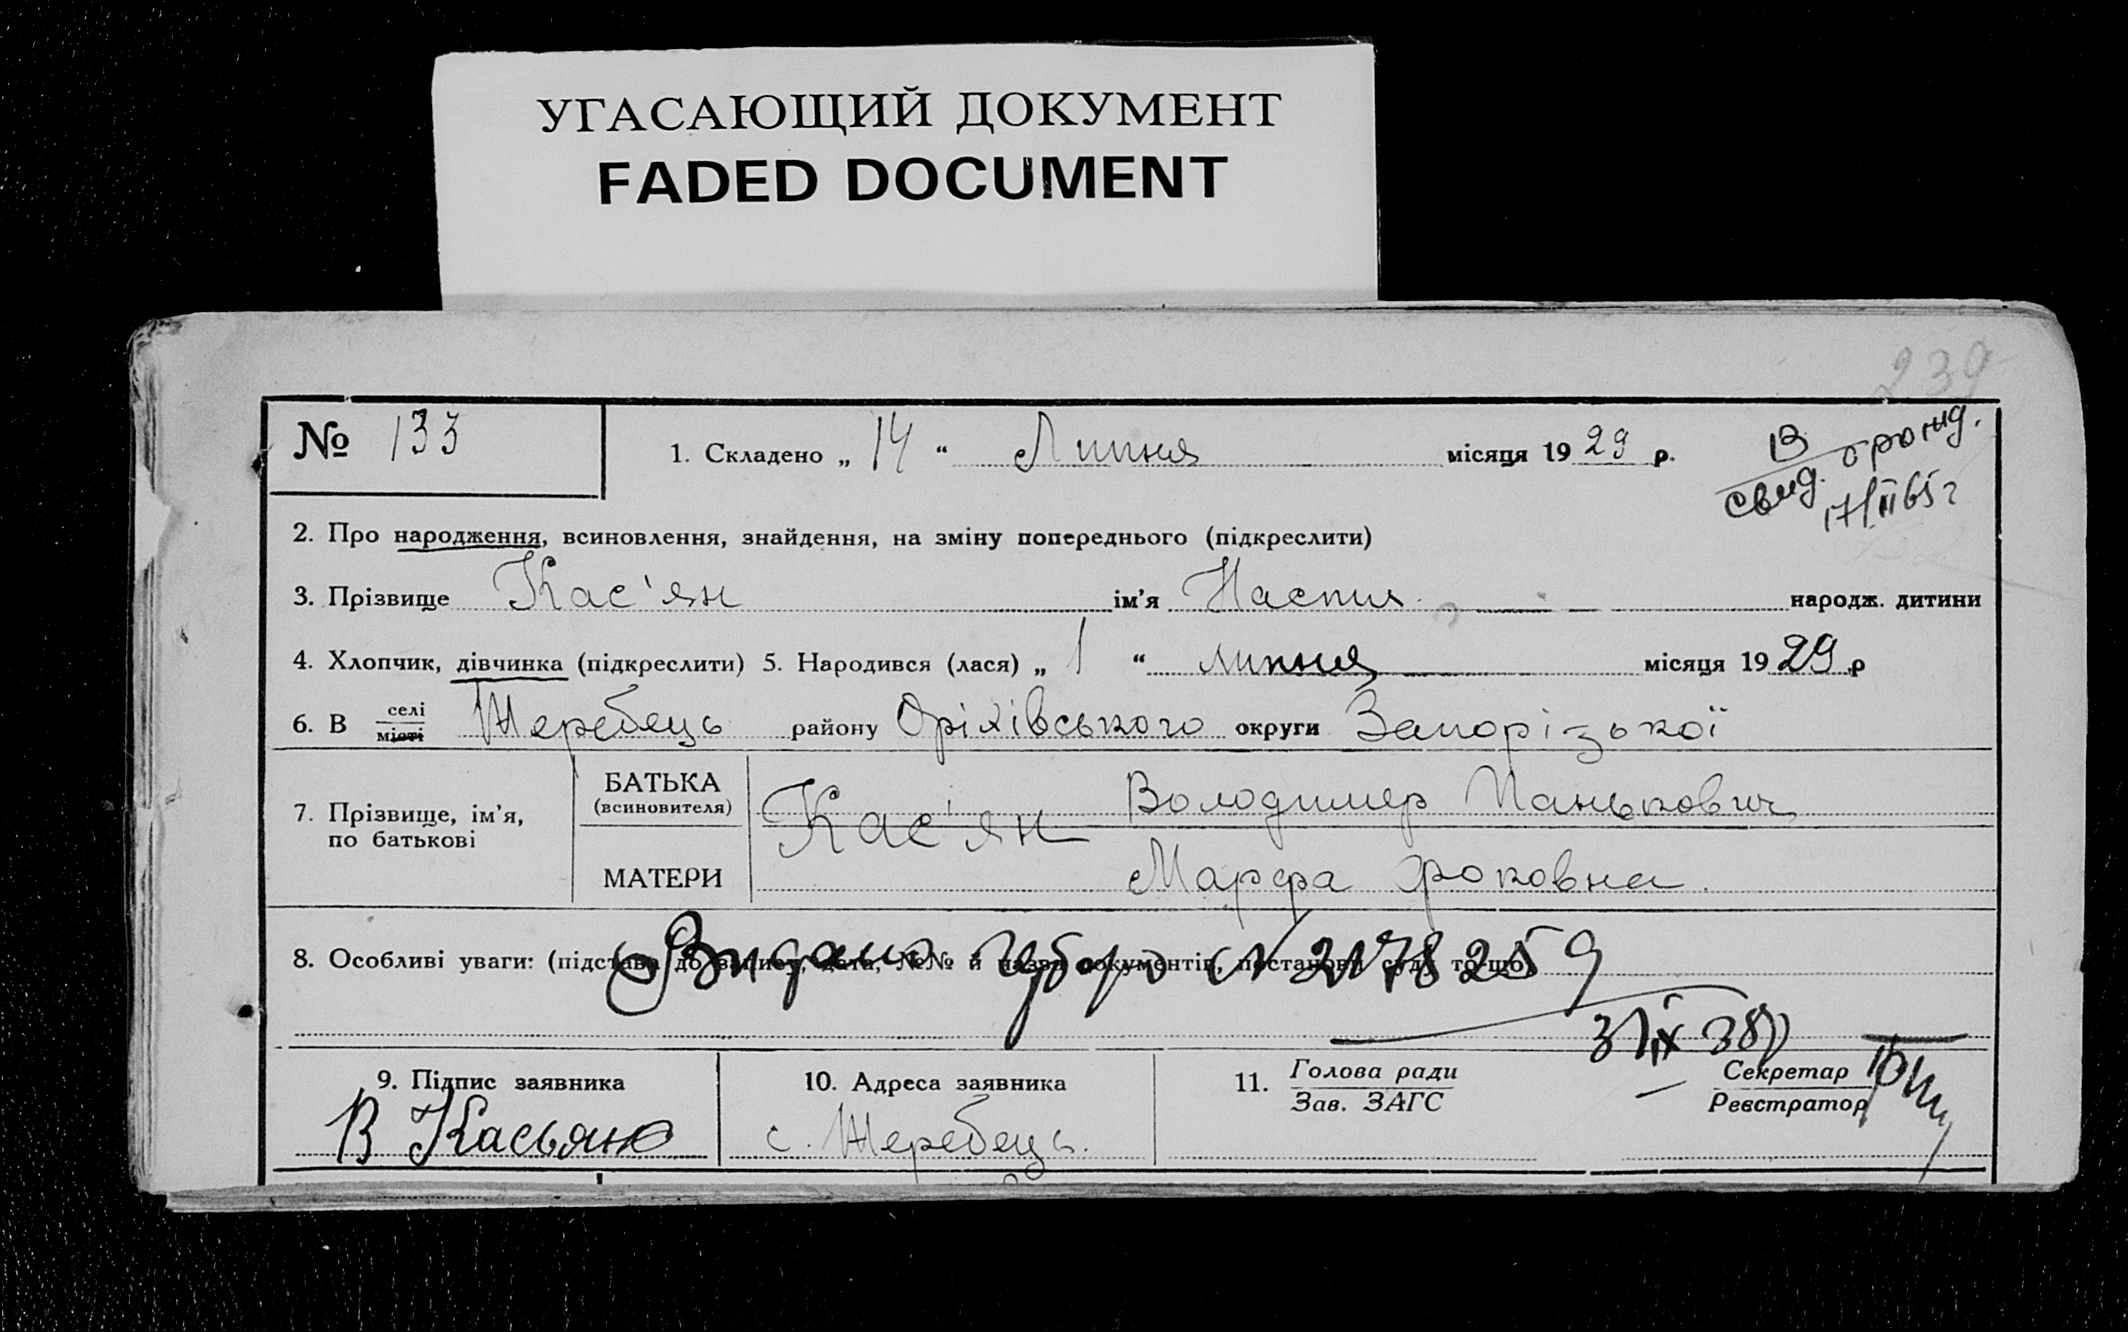 УГАСАЮЩИЙ ДОКУМЕНТ
FADED DOCUMENT
239
№ 133
1. Складено „ 14 “ Липня місяця 1929 р.
В свид. о рожд.
17/II 65 г
2. Про народження, всиновлення, знайдення, на зміну попереднього (підкреслити)
3. Прізвище Кас'ян ім'я Настя народж. дитини
4. Хлопчик, дівчинка (підкреслити) 5. Народився (лася) „ 1 “ липня місяця 1929 р
6. В селі місті Жеребець району Оріхівського округи Запорізької
7. Прізвище, ім'я, по батькові
БАТЬКА (всиновителя) Кас'ян Володимер Панькович
МАТЕРИ Марфа Фоковна.
8. Особливі уваги: (підстава до запису, дата, №№ й назва документів, постанова суду то-що)
9. Підпис заявника
В Касьян
10. Адреса заявника
с. Жеребець.
11. Голова ради
Зав. ЗАГС
Секретар
Реєстратор